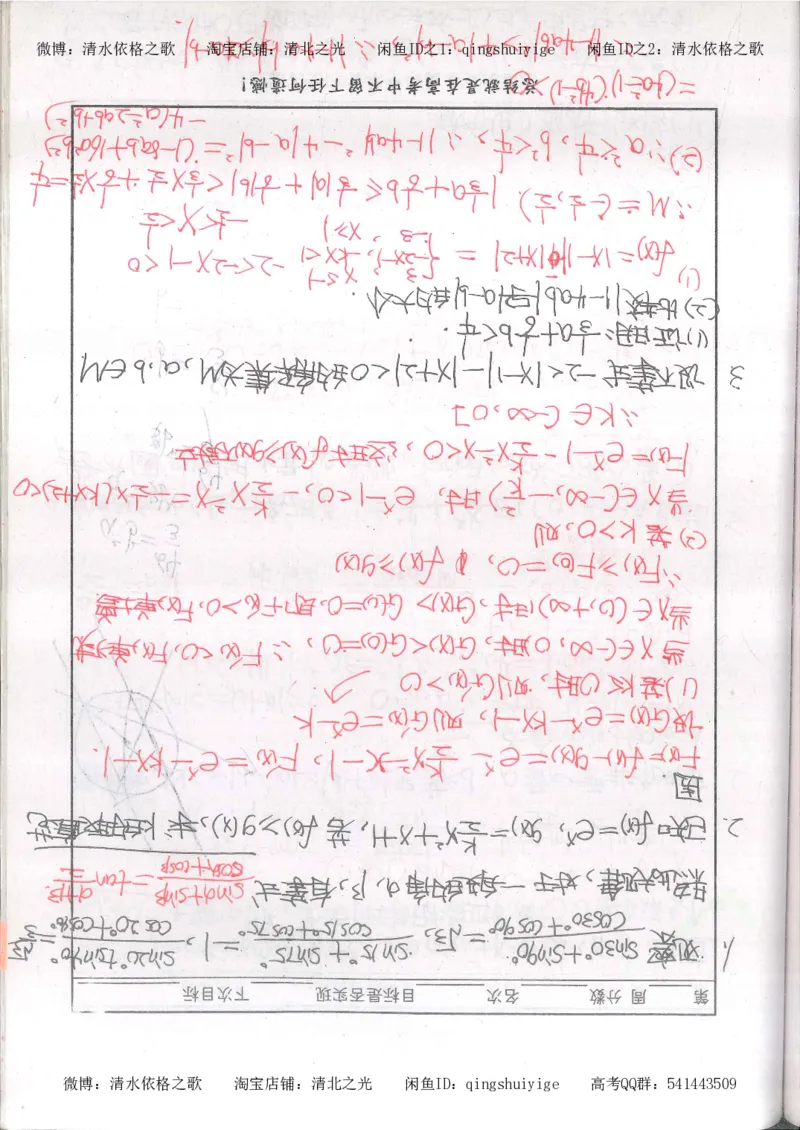 微博：清水依格之歌 淘宝店铺：清北之光 闲鱼ID之1：qingshuiyige 闲鱼ID之2：清水依格之歌
第 周 分数 名次 目标是否实现 下次目标
1. 观察 (sin30°+sin90°)/(cos30°+cos90°)=√3, (sin15°+sin75°)/(cos15°+cos75°)=1, (sin20°+sin40°)/(cos20°+cos40°)=√3/3
总结规律,对于一般的角α,β,有等式 (sinα+sinβ)/(cosα+cosβ)=tan (α+β)/2
2. 已知f(x)=eˣ, g(x)=k/2 x²+x+1, 若 f(x)≥g(x), 求k的取值范
围
F(x)=f(x)-g(x)=eˣ-k/2 x²-x-1, F'(x)=eˣ-kx-1.
设G(x)=eˣ-kx-1, 则G'(x)=eˣ-k
(1)若k≤0时, 则G'(x)>0
当x∈(-∞,0)时, G(x)<G(0)=0, ∴F'(x)<0, F(x)单减
当x∈(0,+∞)时, G(x)>G(0)=0, 即F'(x)>0, F(x)单增
∴F(x)≥F(0)=0, f(x)≥g(x)
(2)若k>0, 则
当x∈(-∞,-2/k)时, eˣ-1<0, k/2 x²+x=1/2 x(kx+2)
F(x)=eˣ-1-k/2 x²-x<0, 这与f(x)≥g(x)
∴k∈(-∞,0]
3 设不等式-2<|x-1|-|x+2|<0的解集为M, a,b∈M
(1)证明: |1/3 a+1/6 b|<1/4.
(2)比较|1-4ab|与2|a-b|的大小.
(1)
f(x)=|x-1|-|x+2|={3, x≤-2; -2x-1, -2<x<1; -3, x≥1} -2<-2x-1<0
-1/2<x<1/2
∴M=(-1/2,1/2) |1/3 a+1/6 b|≤1/3|a|+1/6|b|<1/3×1/2+1/6×1/2=1/4
(2)∵a²<1/4, b²<1/4, ∴|1-4ab|²-4|a-b|²=(1-8ab+16a²b²)
-4(a²-2ab+b²)
=(4a²-1)(4b²-1)>0
总结就是在高考中不留下任何遗憾！
微博：清水依格之歌 淘宝店铺：清北之光 闲鱼ID：qingshuiyige 高考QQ群：541443509